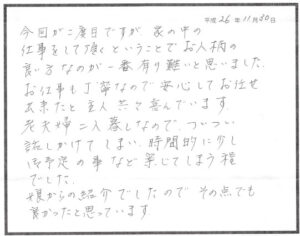 平成26年11月30日
今回が二度目ですが、家の中の
仕事をして頂くということでお人柄の
良い方なのが一番有り難いと思いました。
お仕事も丁寧なので安心してお任せ
出来たと主人共々喜んでいます
老夫婦二人暮しなので、ついつい
話しかけてしまい、時間的に少し
御予定の事など案じてしまう程
でした。
娘からの紹介でしたので その点でも
良かったと思っています